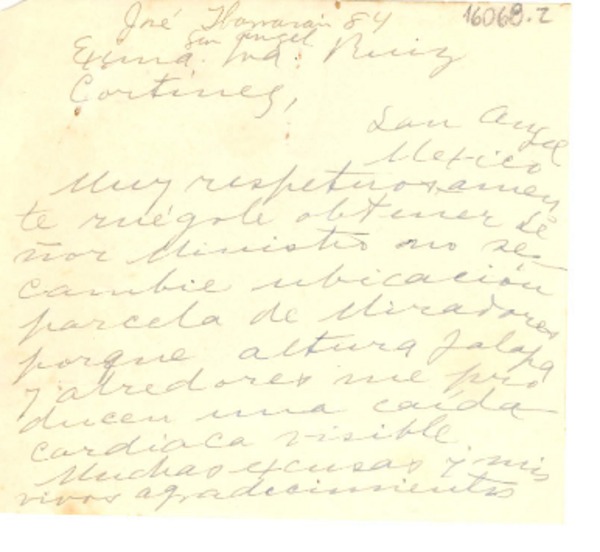 José Ibarrarán 84
16068.2
San Angel
Exsma. Sra. Ruiz
Cortines,
San Angel
Mexico
Muy respetuosamen
te ruégole obtener Se
ñor Ministro no se
cambie ubicación
parcela de Miradores
porque altura Jalapa
y alrededores me pro
ducen una caída
cardiaca visible
Muchas excusas y mis
vivos agradecimientos